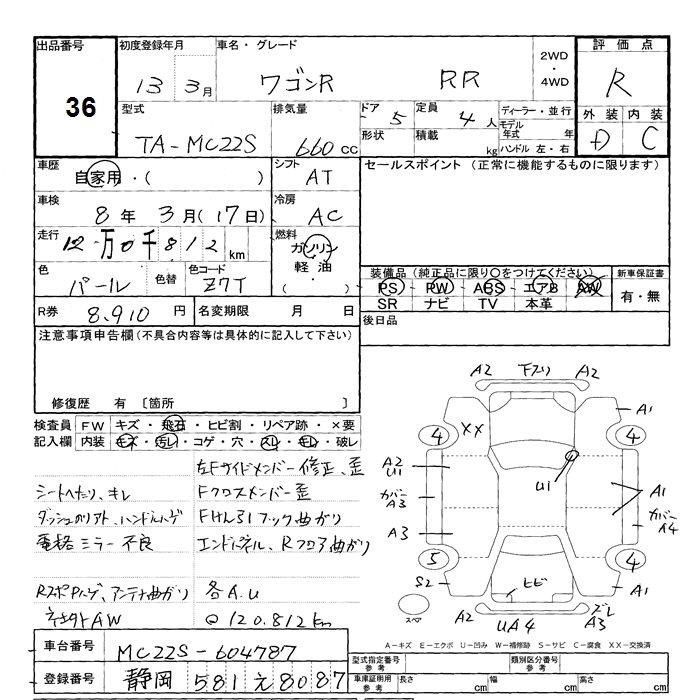 出品番号 初度登録年月 車名・グレード 2WD・4WD 評価点
36 13 3月 ワゴンR RR R
外装 内装
D C
型式 排気量 ドア 5 定員 4人 ディーラー・並行
TA-MC22S 660cc 形状 積載 kg モデル年式 年
ハンドル 左・右
車歴 シフト セールスポイント (正常に機能するものに限ります)
自家用・( ) AT
車検 冷房
8年 3月(17日) AC
走行 燃料
12万0千812km ガソリン
軽油
( )
色 色替 色コード
パール Z7T
装備品(純正品に限り〇をつけてください) 新車保証書
PS PW ABS エアB AW 有・無
SR ナビ TV 本革
R券 8,910円 名変期限 月 日 後日品
注意事項申告欄(不具合内容等は具体的に記入して下さい)
修復歴 有 〔箇所 〕
検査員 FW キズ・飛石・ヒビ割・リペア跡・×要
記入欄 内装 キズ・汚レ・コゲ・穴・スレ・キレ・破レ
左Fサイドメンバー修正、歪
シートヘたり、キレ Fクロスメンバー歪
フック曲がり
電格ミラー不良 Rフロア曲がり
アンテナ曲がり 各A.U
AW @120,812km
A2 A2
A1
4 XX 4
A2
U1
U1
カバー
A3
A1
カバー
A4
A3
5 4
S2 ヒビ A1
スペア A2 UA4 ズレ
A3
A-キズ E-エクボ U-凹み W-補修跡 S-サビ C-腐食 XX-交換済
車台番号 MC22S-604787 型式指定番号 参考 類別区分番号 参考
登録番号 静岡 581 え 8087 車庫証明用 参考 長さ cm 幅 cm 高さ cm